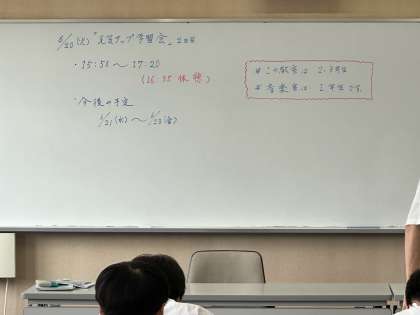 6/20(火)「実質アップ学習会」2日目
・15:50〜17:20
(16:35 休憩)
・今後の予定
6/21(水)〜6/23(金)
# この教室は 2,3年生
# 音楽室は 1年生です。